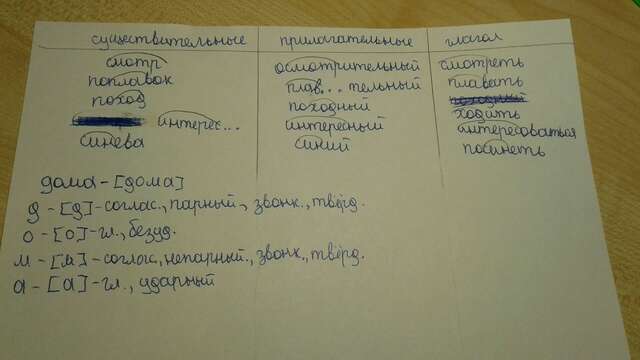 существительные прилагательные глагол
смотр осмотрительный смотреть
поплавок плав...тельный плавать
поход походный
ходить
интерес... интересный интересоваться
синева синий посинеть
дома - [дома]
д - [д] - соглас., парный, звонк., твёрд.
о - [о] - гл., безуд.
м - [м] - соглас, непарный., звонк., твёрд.
а - [а] - гл., ударный